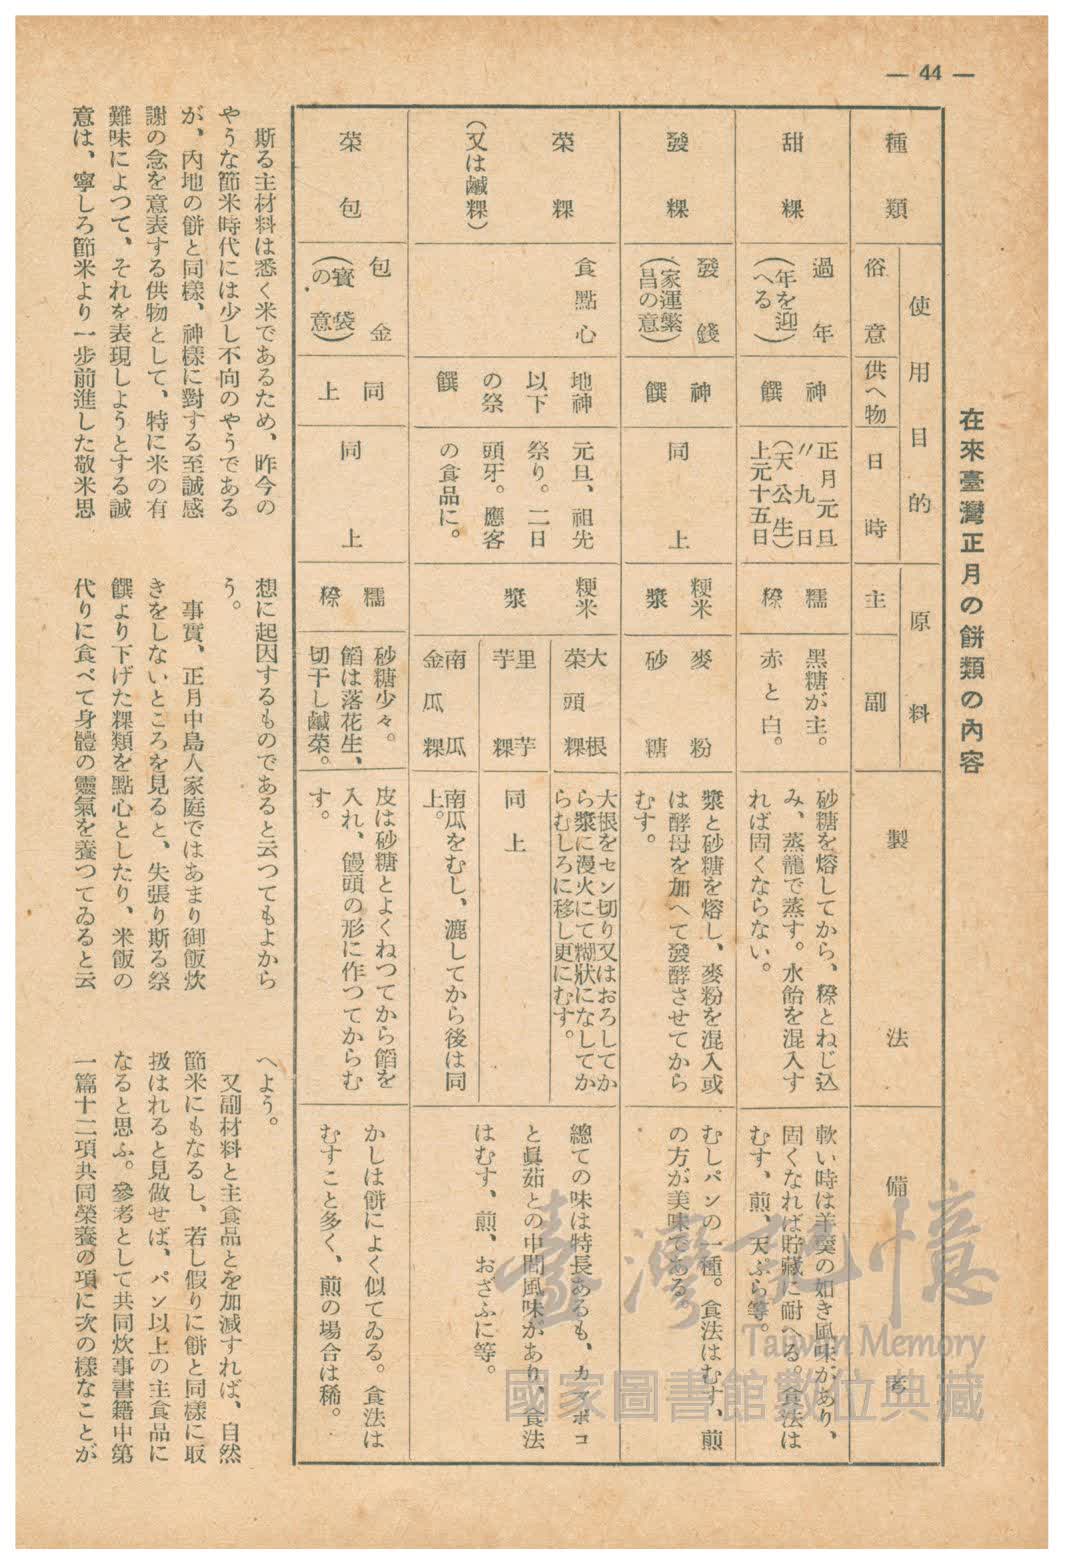 — 44 —
在來臺灣正月の餅類の內容
種類
使用目的
俗意
供へ物
日時
原料
主
副
製法
備考
甜粿
過年
(年を迎
へる)
神饌
正月元旦
〃九日
(天公生)
上元十五日
糯
粰
黑糖が主。
赤と白。
砂糖を熔してから、粰とねじ込
み、蒸籠で蒸す。水飴を混入す
れば固くならない。
軟い時は羊羹の如き風味があり、
固くなれば貯藏に耐へる。食法は
むす、煎、天ぷら等。
發粿
發錢
(家運繁
昌の意)
神饌
同上
粳米
漿
麥粉
砂糖
漿と砂糖を熔し、麥粉を混入或
は酵母を加へて發酵させてから
むす。
むしパンの一種。食法はむす、煎
の方が美味である
菜粿
(又は鹹粿)
食點心
地神
以下
の祭
饌
元旦、祖先
祭り。二日
頭牙。應客
の食品に。
粳米
漿
大根
菜頭粿
大根をセン切り又はおろしてか
ら漿に漫火にて糊狀になしてか
らむしろに移し更にむす。
里芋
芋粿
同上
南瓜
金瓜粿
南瓜をむし、漉してから後は同
上。
總ての味は特長あるも、カマボコ
と眞茹との中間風味があり、食法
はむす、煎、おざふに等。
菜包
包金
(寳袋
の意)
同上
同上
糯
粰
砂糖少々。
餡は落花生、
切干し鹹菜。
皮は砂糖とよくねつてから餡を
入れ、饅頭の形に作つてからむ
す。
かしは餅によく似てゐる。食法は
むすこと多く、煎の場合は稀。
斯る主材料は悉く米であるため、昨今の
やうな節米時代には少し不向のやうである
が、內地の餅と同樣、神樣に對する至誠感
謝の念を意表する供物として、特に米の有
難味によつて、それを表現しようとする誠
意は、寧しろ節米より一步前進した敬米思
想に起因するものであると云つてもよから
う。
事實、正月中島人家庭ではあまり御飯炊
きをしないところを見ると、失張り斯る祭
饌より下げた粿類を點心としたり、米飯の
代りに食べて身體の靈氣を養つてゐると云
へよう。
又副材料と主食品とを加減すれば、自然
節米にもなるし、若し假りに餅と同樣に取
扱はれると見做せば、パン以上の主食品に
なると思ふ。參考として共同炊事書籍中第
一篇十二項共同榮養の項に次の樣なことが
臺灣記憶
Taiwan Memory
國家圖書館數位典藏